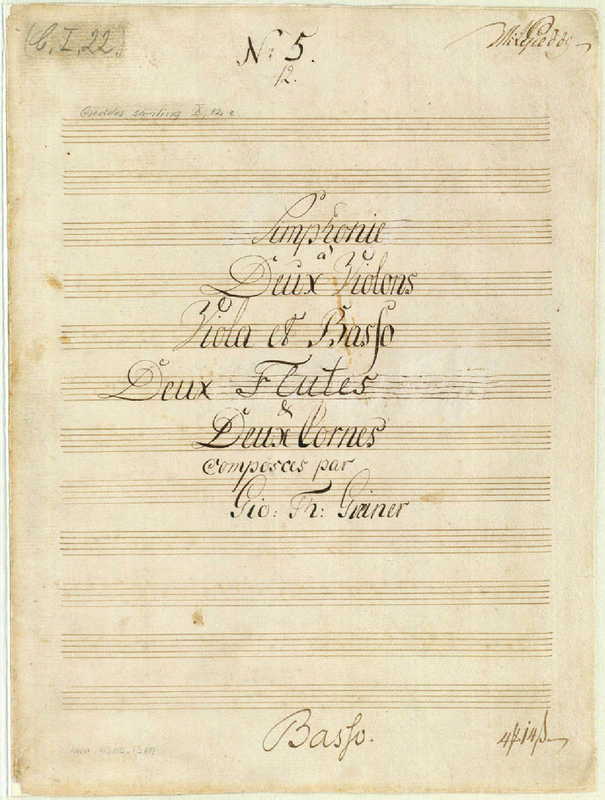 C. I, 22.
No: 5.
12.
Gieddes samling X, 12, c
Simphonie
a
Deux Violons
Viola et Basso
Deux Flutes
&
Deux Cornes
Composees par
Gio: Th: Greiner
Basso.